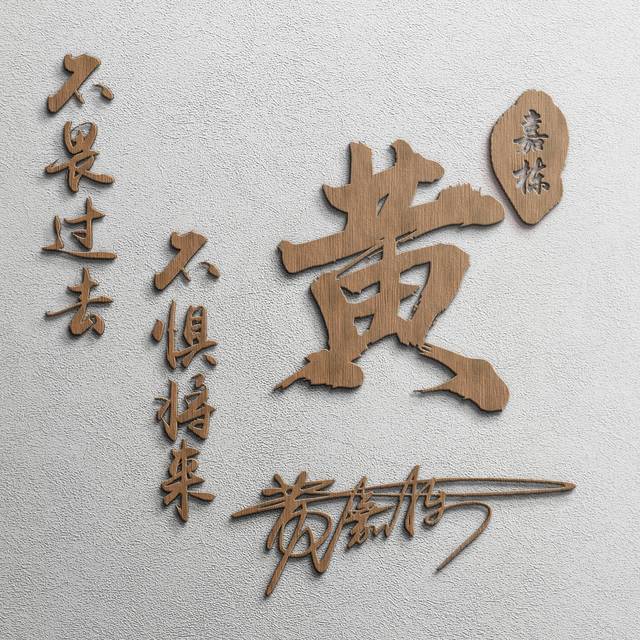 不畏过去
不惧将来
黄
嘉栋
黄嘉栋